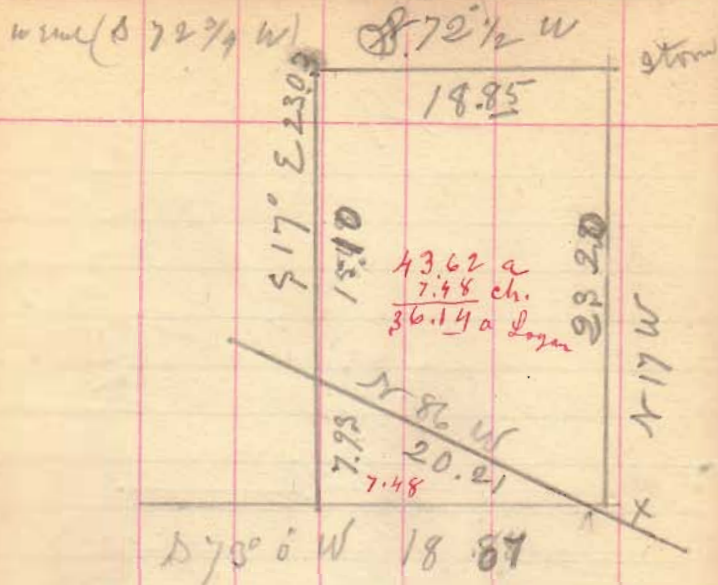 (S 72 3/4 W)
S. 72° 1/2 W
18.85
S 17° E 23.03
15.10
43.62 a
7.48 ch.
36.14 a Logan
23 20
N 17 W
N 86 W
20.21
7.93
7.48
X
S 73° 0' W 18 87